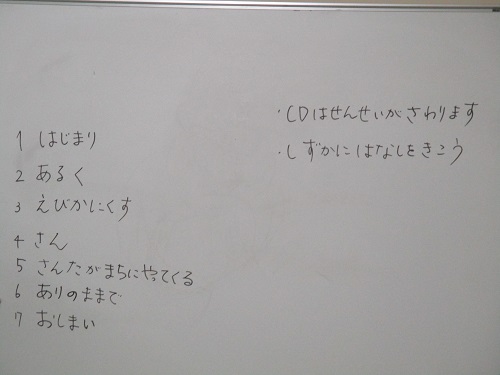 1 はじまり
2 あるく
3 えびかにくす
4 さん
5 さんたがまちにやってくる
6 ありのままで
7 おしまい
・CDはせんせいがさわります
・しずかにはなしをきこう